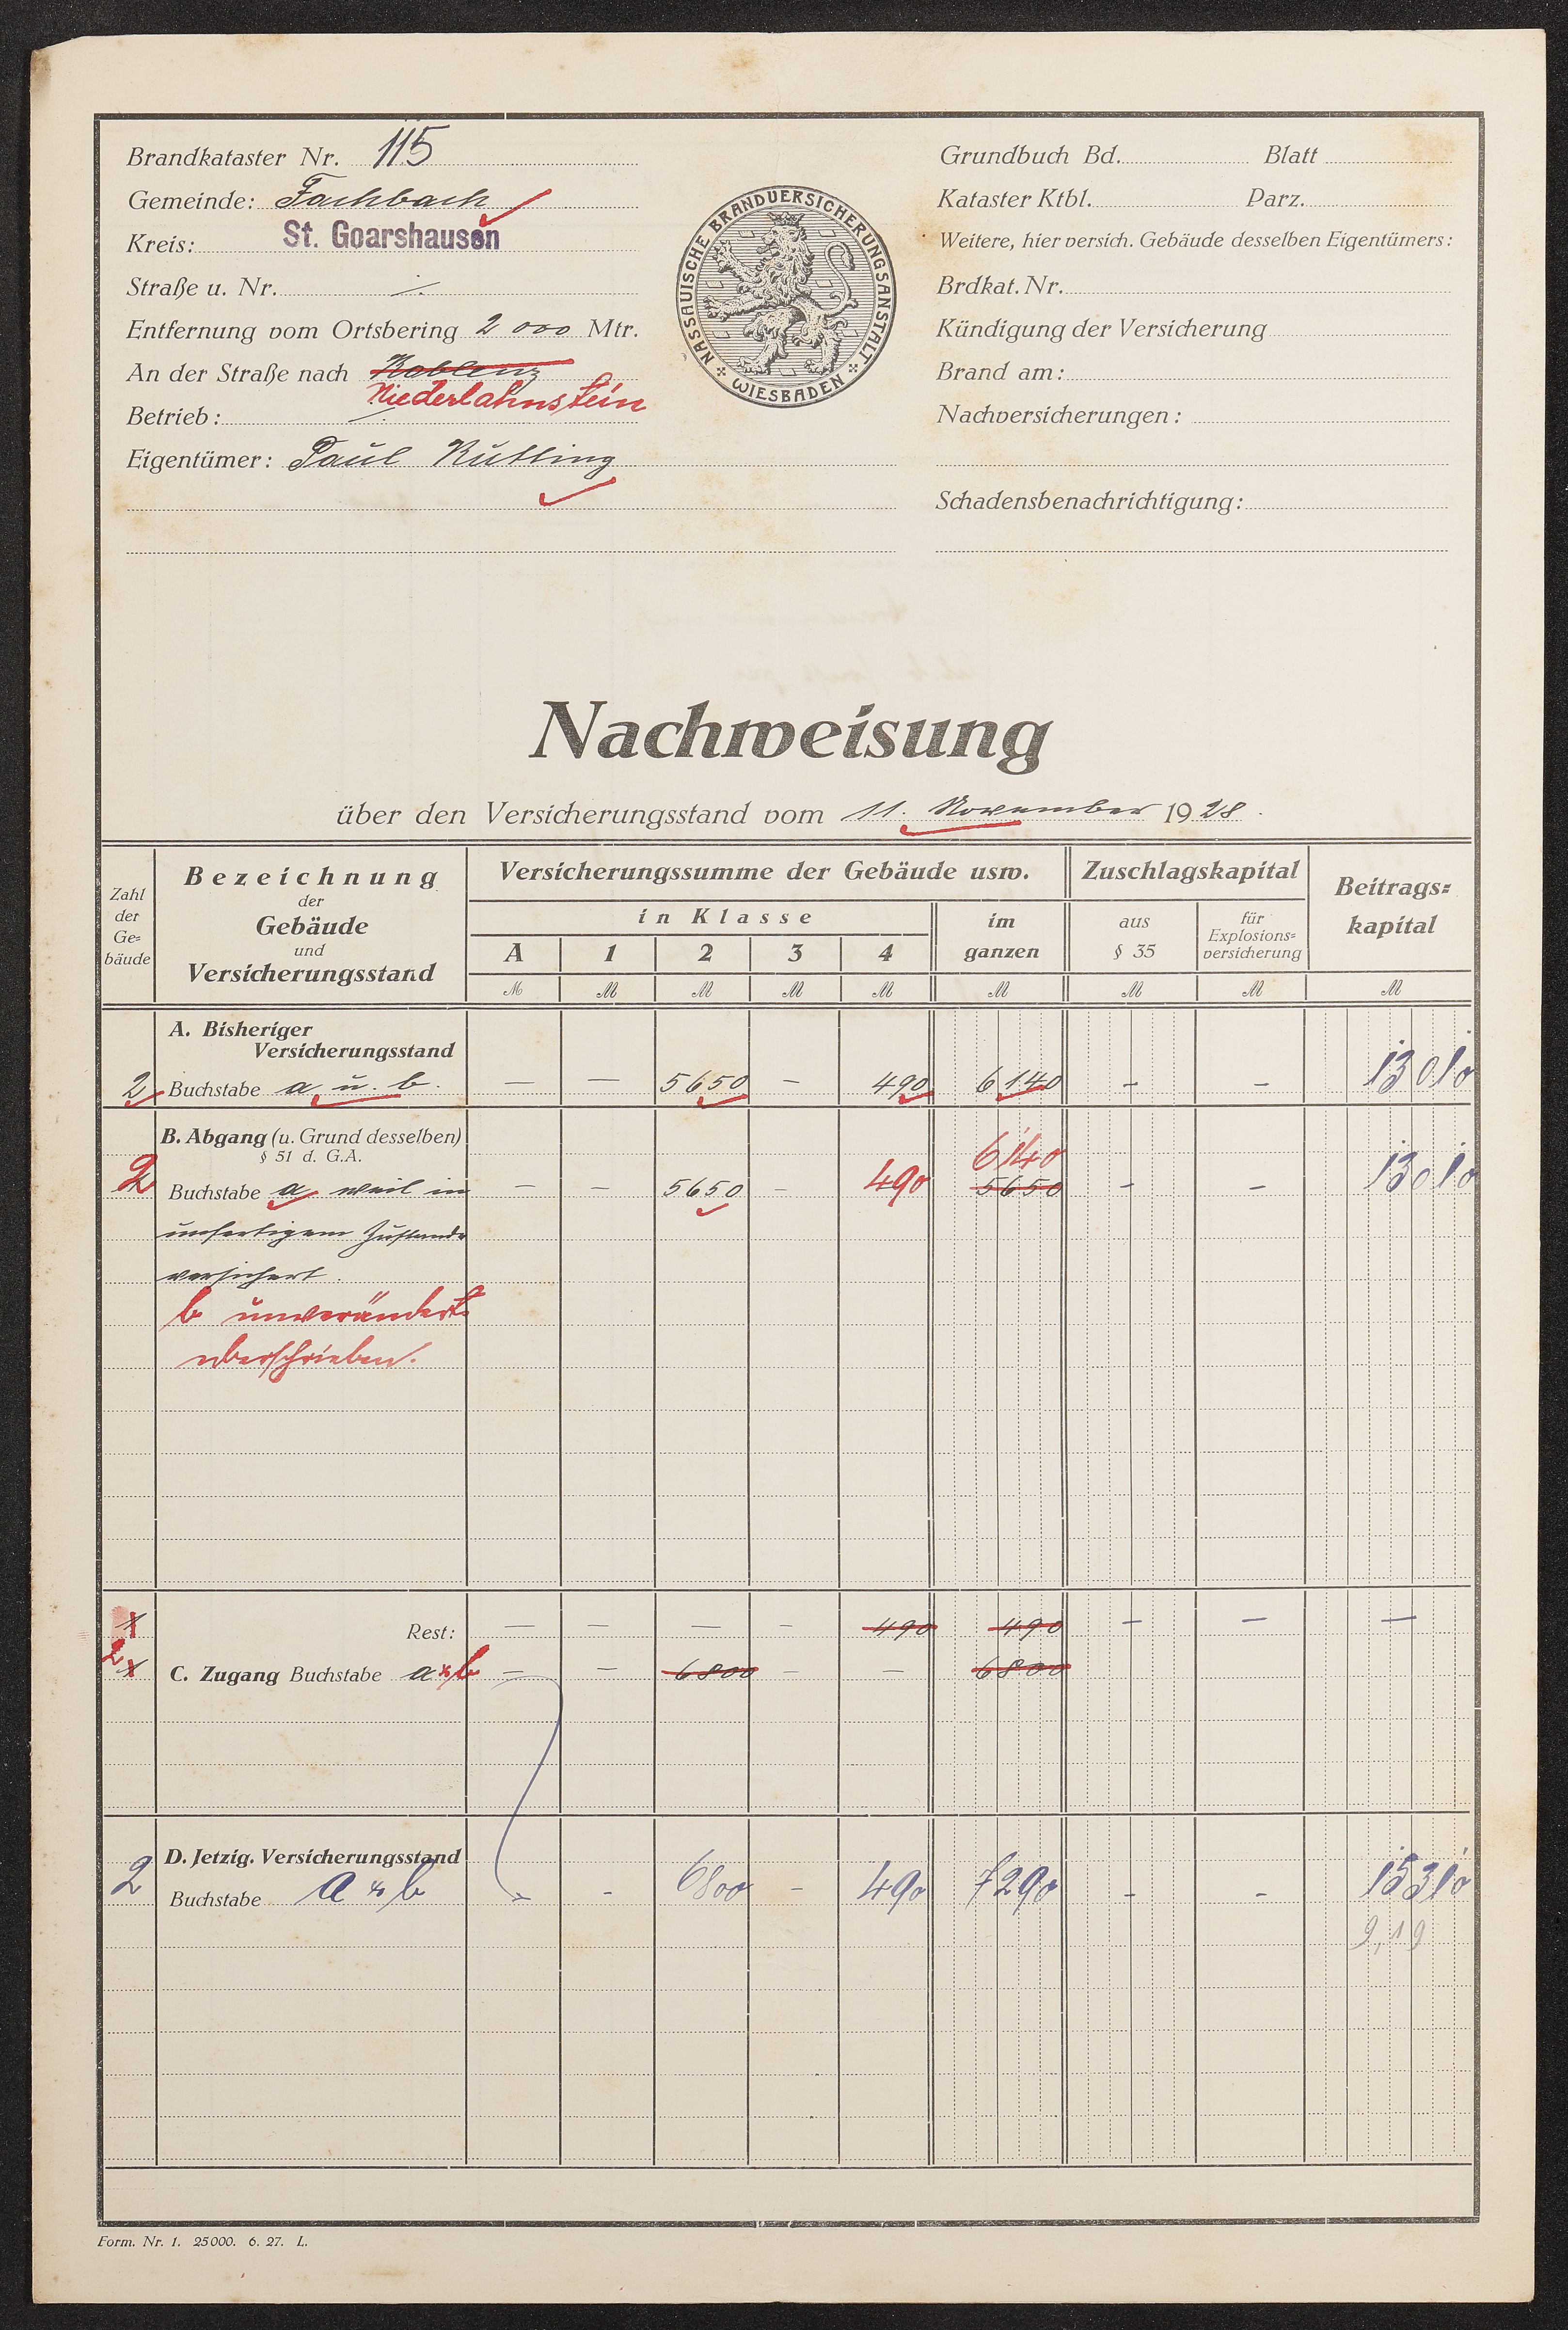 Brandkataster Nr. 115
Gemeinde: Fachbach
Kreis: St. Goarshausen
Straße u. Nr. ./.
Entfernung vom Ortsbering 2 000 Mtr.
An der Straße nach Koblenz
Niederlahnstein
Betrieb: ./.
Eigentümer: Paul Rütting
NASSAUISCHE BRANDVERSICHERUNGSANSTALT
WIESBADEN
Grundbuch Bd. Blatt
Kataster Ktbl. Parz.
Weitere, hier versich. Gebäude desselben Eigentümers:
Brdkat. Nr.
Kündigung der Versicherung
Brand am:
Nachversicherungen:
Schadensbenachrichtigung:
Nachweisung
über den Versicherungsstand vom 11. November 1928.
Zahl der Ge=bäude
Bezeichnung der Gebäude und Versicherungsstand
Versicherungssumme der Gebäude usw.
in Klasse
A 1 2 3 4
im ganzen
Zuschlagskapital
aus § 35
für Explosions=versicherung
Beitrags=kapital
M M M M M M M M M
A. Bisheriger
Versicherungsstand
2 Buchstabe a u. b. — — 5650 — 490 6140 - - 13010
B. Abgang (u. Grund desselben)
§ 51 d. G.A.
6140
2 Buchstabe a weil in — — 5650 — 490 5650 - - 13010
unfertigem Zustande
versichert.
b unverändert
überschrieben.
1 Rest: — — — — 490 490 — — —
2 1 C. Zugang Buchstabe a u b — — 6800 — — 6800
D. Jetzig. Versicherungsstand
2 Buchstabe a u b - - 6800 - 490 7290 - - 15310
9,19
Form. Nr. 1. 25000. 6. 27. L.